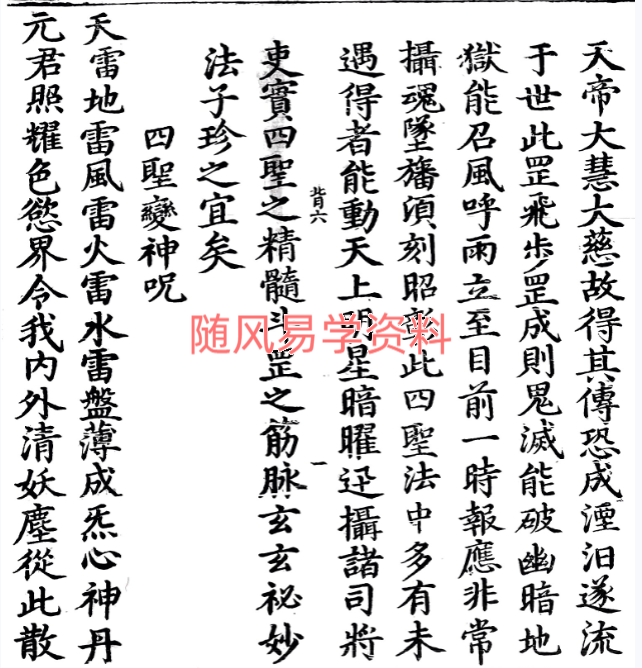 天帝大慧大慈故得其傳恐成湮汨遂流
于世此罡飛步罡成則鬼滅能破幽暗地
獄能召風呼雨立至目前一時報應非常
攝魂墜旛須刻昭彰此四聖法中多有未
遇得者能動天上明星暗曜迅攝諸司將
背六
一
吏實四聖之精髓斗罡之筋脉玄玄祕妙
法子珍之宜矣
四聖變神呪
天雷地雷風雷火雷水雷盤薄成炁心神丹
元君照耀色慾界令我內外清妖塵從此散
随风易学资料